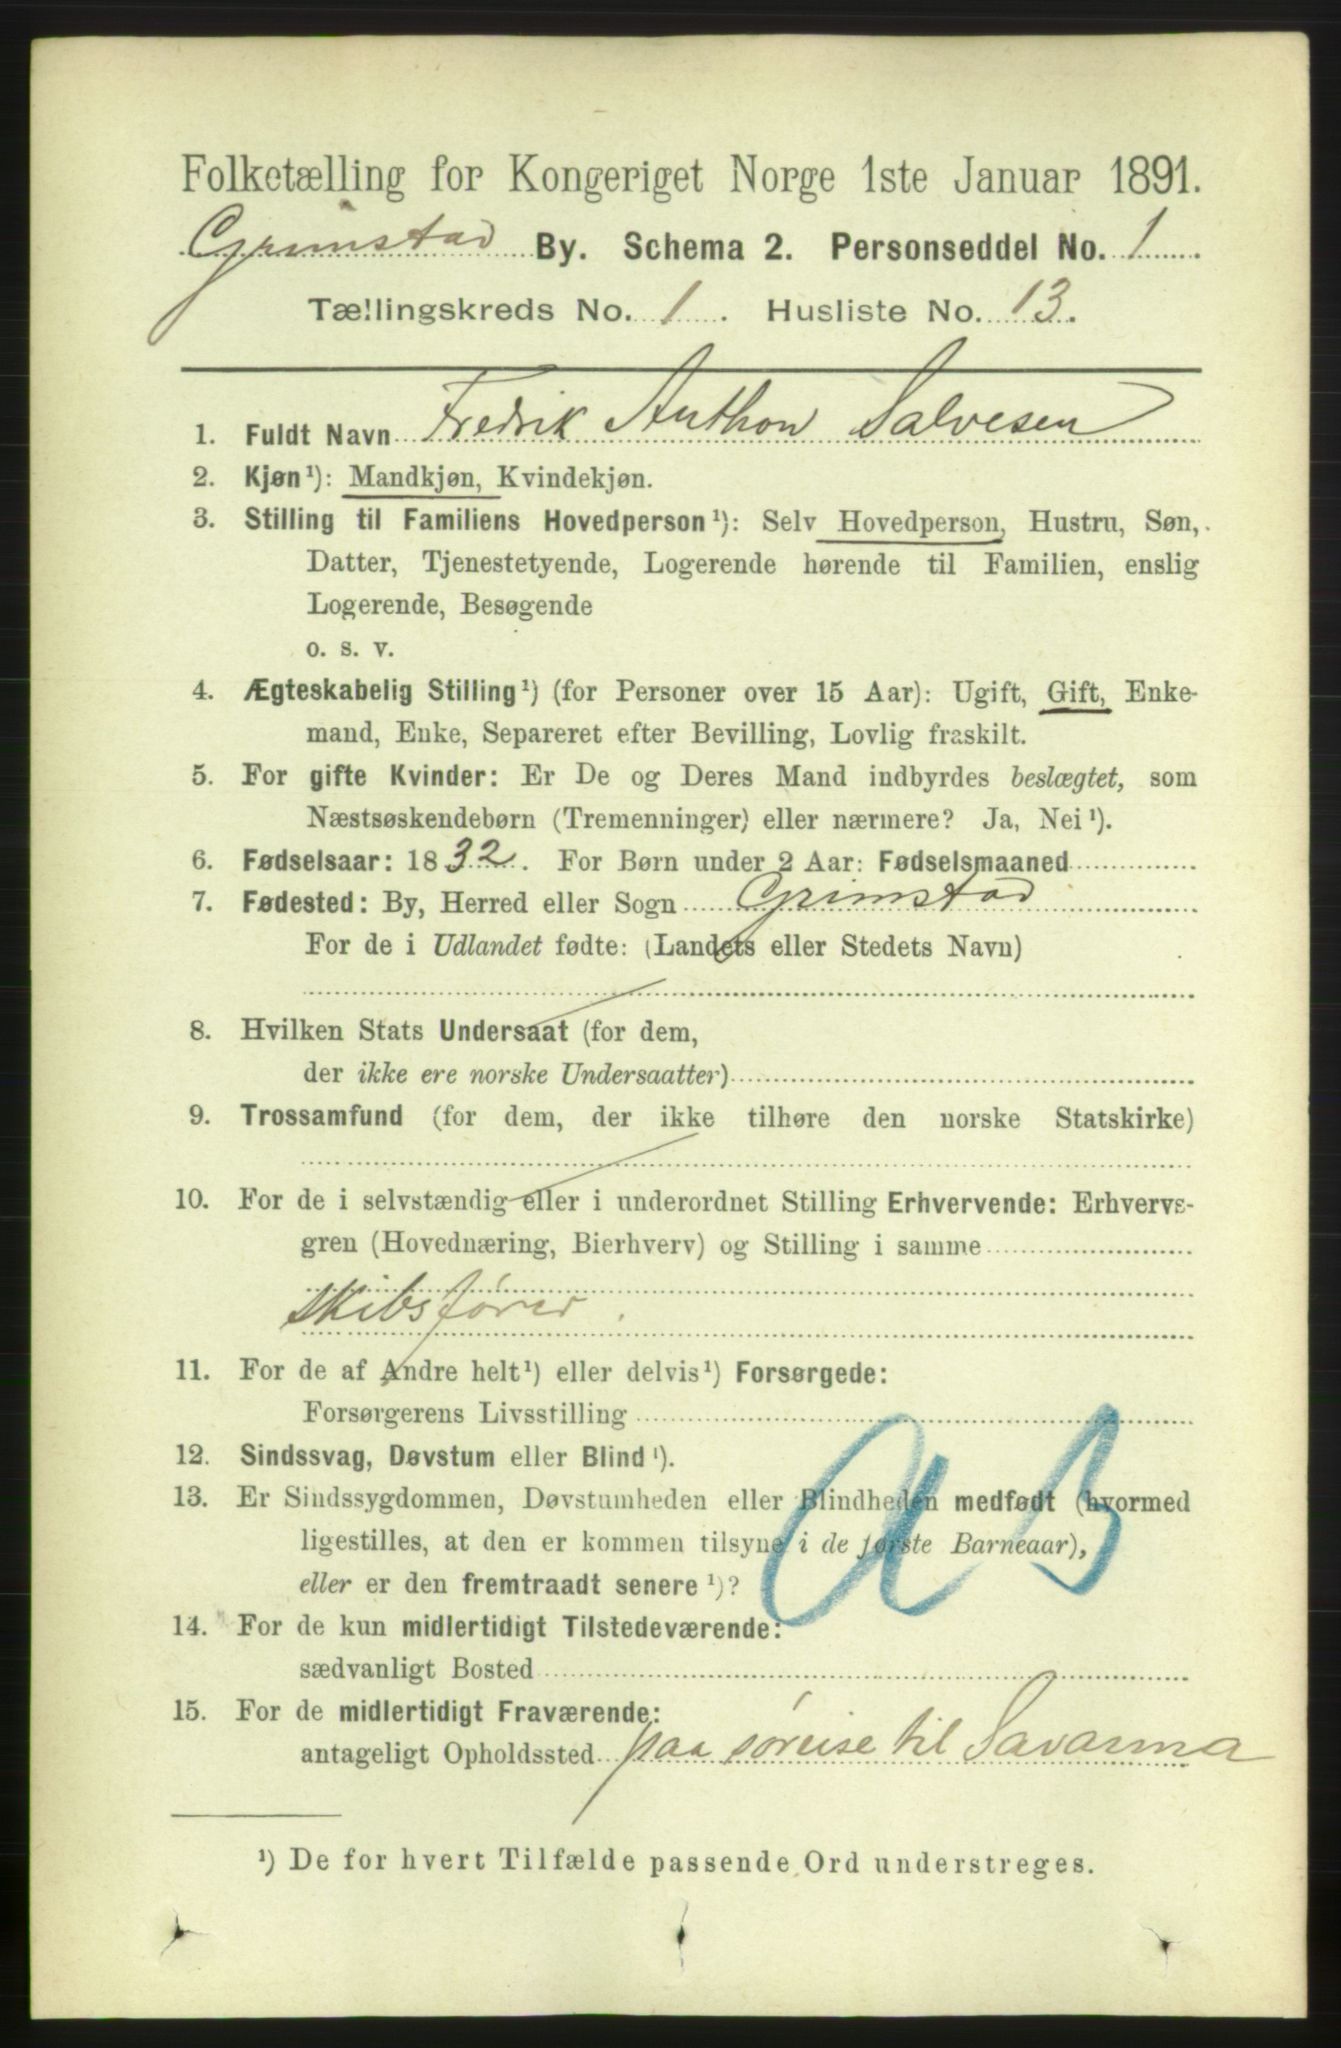 Folketælling for Kongeriget Norge 1ste Januar 1891.
Grimstad By. Schema 2. Personseddel No. 1
Tællingskreds No. 1. Husliste No. 13.
1. Fuldt Navn Fredrik Anthon Salvesen
2. Kjøn¹): Mandkjøn, Kvindekjøn.
3. Stilling til Familiens Hovedperson¹): Selv Hovedperson, Hustru, Søn,
Datter, Tjenestetyende, Logerende hørende til Familien, enslig
Logerende, Besøgende
o. s. v.
4. Ægteskabelig Stilling¹) (for Personer over 15 Aar): Ugift, Gift, Enke-
mand, Enke, Separeret efter Bevilling, Lovlig fraskilt.
5. For gifte Kvinder: Er De og Deres Mand indbyrdes beslægtet, som
Næstsøskendebørn (Tremenninger) eller nærmere? Ja, Nei¹).
6. Fødselsaar: 1832. For Børn under 2 Aar: Fødselsmaaned
7. Fødested: By, Herred eller Sogn Grimstad
For de i Udlandet fødte: (Landets eller Stedets Navn)
8. Hvilken Stats Undersaat (for dem,
der ikke ere norske Undersaatter)
9. Trossamfund (for dem, der ikke tilhøre den norske Statskirke)
10. For de i selvstændig eller i underordnet Stilling Erhvervende: Erhvervs-
gren (Hovednæring, Bierhverv) og Stilling i samme
skibsfører.
11. For de af Andre helt¹) eller delvis¹) Forsørgede:
Forsørgerens Livsstilling
12. Sindssvag, Døvstum eller Blind¹).
13. Er Sindssygdommen, Døvstumheden eller Blindheden medfødt (hvormed
ligestilles, at den er kommen tilsyne i de første Barneaar),
eller er den fremtraadt senere¹)?
14. For de kun midlertidigt Tilstedeværende:
sædvanligt Bosted
15. For de midlertidigt Fraværende:
antageligt Opholdssted paa søreise til Savanna
¹) De for hvert Tilfælde passende Ord understreges.